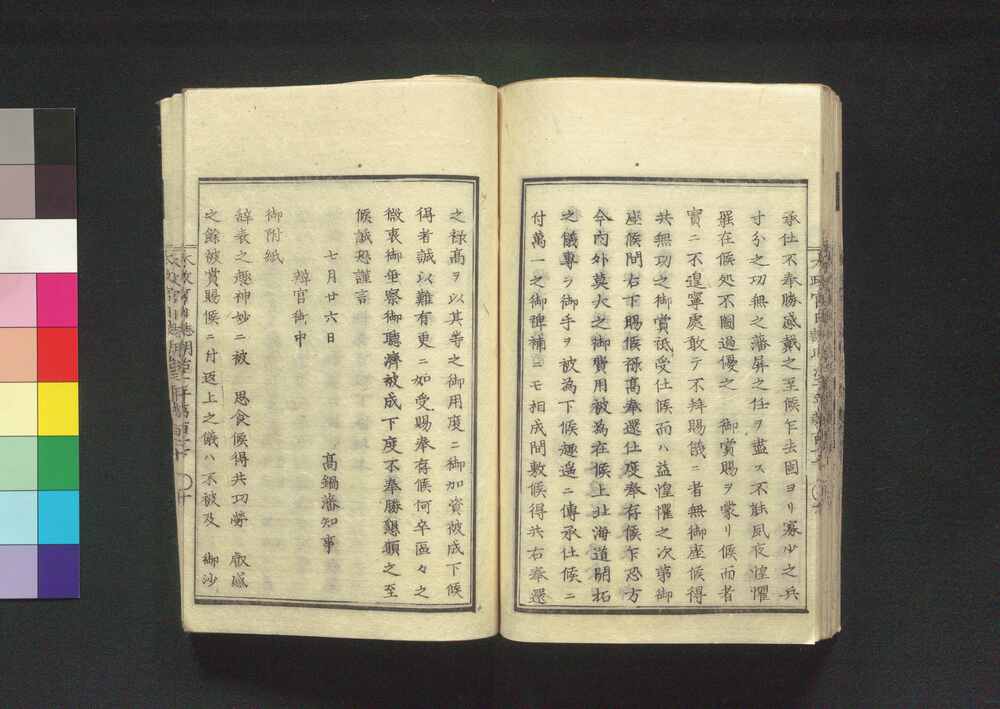 承仕不奉勝感戴之至候乍去固ヨリ寡少之兵
寸分之功無之藩屏之任ヲ盡ス不能夙夜惶懼
罷在候処不圖過優之 御賞賜ヲ蒙リ候而者
實ニ不遑寧處敢テ不辞賜儀ニ者無御座候得
共無功之御賞祗受仕候而ハ益惶懼之次第御
座候間右下賜候禄高奉還仕度奉存候乍恐方
今内外莫大之御費用被為在候上北海道開拓
之儀專ラ御手ヲ被為下候趣遥ニ傳承仕候ニ
付萬一之御裨補ニモ相成間敷候得共右奉還
之禄高ヲ以其等之御用度ニ御加資被成下候
得者誠以難有更ニ如受賜奉存候何卒區々之
微衷御垂察御聽濟被成下度不奉勝懇願之至
候誠恐謹言
七月廿六日 高鍋藩知事
辨官御中
御附紙
辞表之趣神妙ニ被 思食候得共功勞 叡感
之餘被賞賜候ニ付返上之儀ハ不被及 御沙